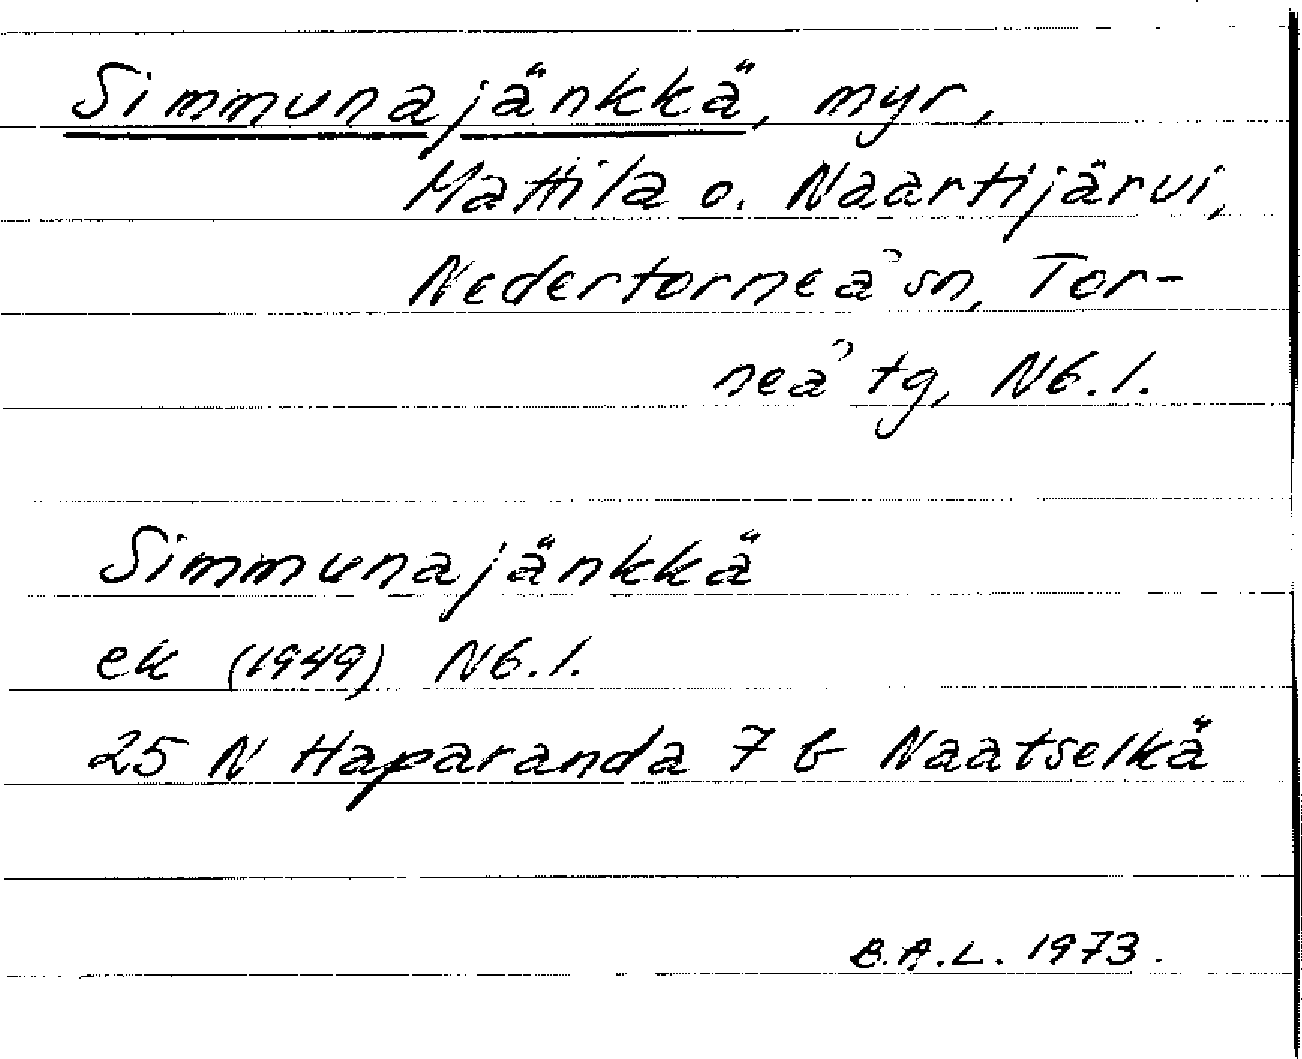 Simmunajänkkä, myr,
Mattila o. Naartijärvi,
Nedertorneå sn, Tor-
neå tg, Nb.l.
Simmunajänkkä
ek (1949) Nb.l.
25 N Haparanda 7 b Naatselkä
B.A.L. 1973.